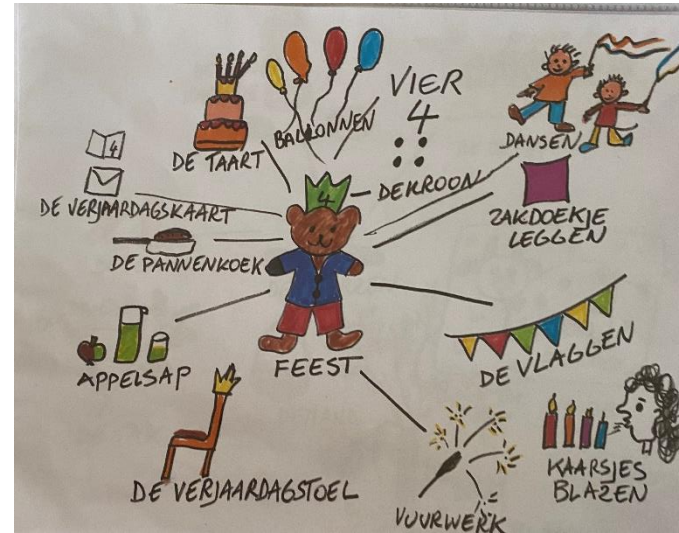 BALLONNEN
VIER
4
DE TAART
DANSEN
4
DE VERJAARDAGSKAART
4
DE KROON
ZAKDOEKJE
LEGGEN
DE PANNENKOEK
APPELSAP
FEEST
DE VLAGGEN
DE VERJAARDAGSTOEL
VUURWERK
KAARSJES
BLAZEN